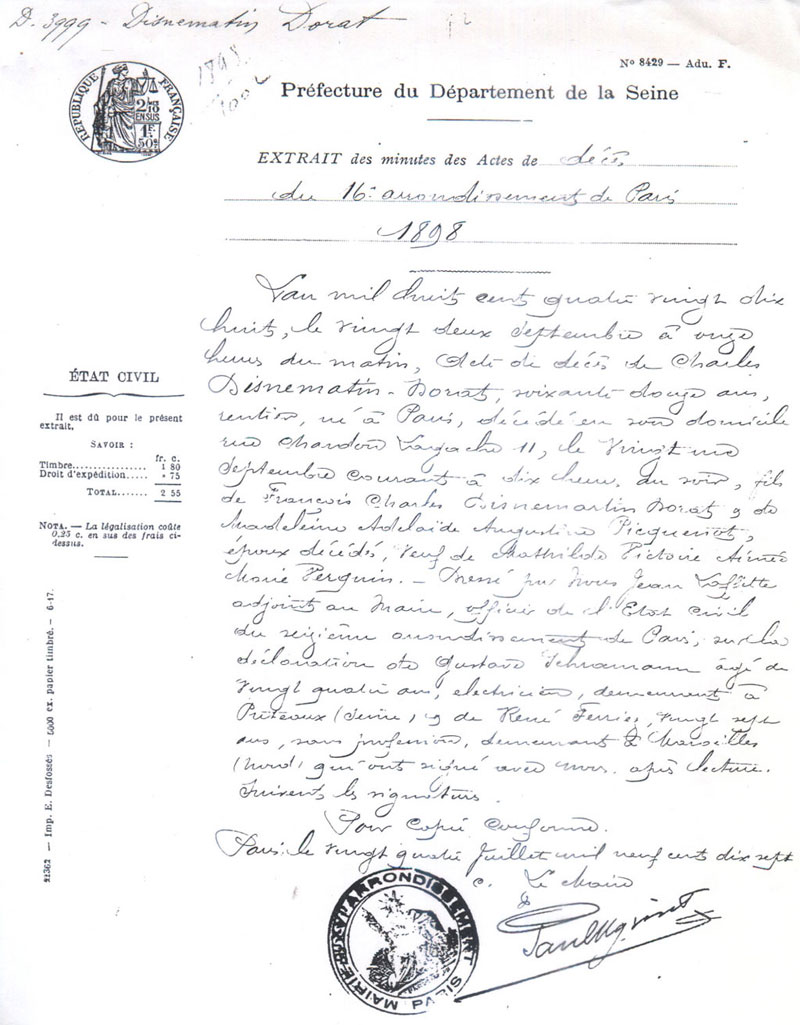 D. 3999 - Disnematin Dorat
1898
1002
Nº 8429 — Adu. F.
Préfecture du Département de la Seine
RÉPUBLIQUE FRANÇAISE
2/10
EN SUS
1F
50c
EXTRAIT des minutes des Actes de décès
du 16e arrondissement de Paris
1898
L'an mil huit cent quatre vingt dix
huit, le vingt deux septembre à onze
heures du matin, Acte de décès de Charles
Disnematin-Dorat, soixante douze ans,
rentier, né à Paris, décédé en son domicile
rue Chardon Lagache 11, le vingt un
septembre courant à dix heures du soir, fils
de François Charles Disnematin Dorat & de
Madeleine Adelaïde Augustine Picquenot,
époux décédés, veuf de Mathilde Victoire Aimée
Marie Perquin. — Dressé par Nous Jean Laffitte
adjoint au Maire, officier de l'Etat Civil
du seizième arrondissement de Paris, sur la
déclaration de Gustave Schramann âgé de
vingt quatre ans, électricien, demeurant à
Puteaux (Seine) & de René Ferrier, vingt sept
ans, sans profession, demeurant à Marseilles
(Nord) qui ont signé avec nous après lecture.
Suivent les signatures.
Pour copie conforme.
Paris, le vingt quatre Juillet mil neuf cent dix sept
Le Maire
ÉTAT CIVIL
Il est dû pour le présent
extrait.
SAVOIR :
fr. c.
Timbre............... 1 80
Droit d'expédition..... » 75
TOTAL....... 2 55
NOTA. — La légalisation coûte
0,25 c. en sus des frais ci-
dessus.
21362 — Imp. E. Desfossés — 5000 ex. papier timbré. — 6-17.
MAIRIE DU XVIe ARRONDISSEMENT PARIS